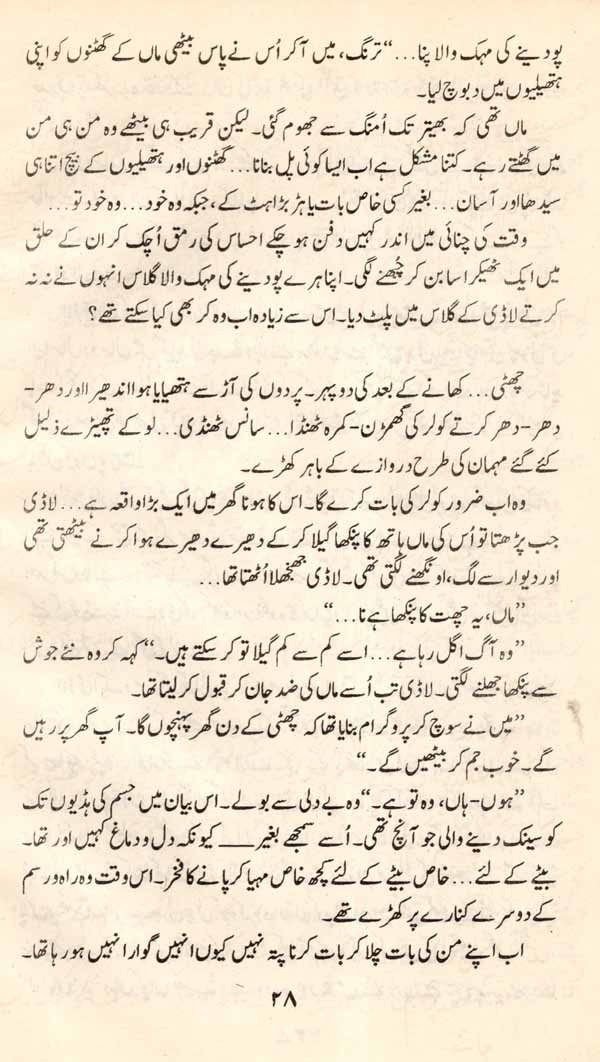 پودینے کی مہک والا پنا...“ ترنگ، میں آکر اُس نے پاس بیٹھی ماں کے گھٹنوں کو اپنی
ہتھیلیوں میں دبوچ لیا۔
ماں تھی کہ بھیتر تک اُمنگ سے جھوم گئی۔ لیکن قریب ہی بیٹھے وہ من ہی من
میں گھٹتے رہے۔ کتنا مشکل ہے اب ایسا کوئی پل بنانا... گھٹنوں اور ہتھیلیوں کے بیچ اتنا ہی
سیدھا اور آسان... بغیر کسی خاص بات یا ہڑبڑاہٹ کے، جبکہ وہ خود... وہ خود تو...
وقت کی چنائی میں اندر کہیں دفن ہو چکے احساس کی رمق اُچک کر ان کے حلق
میں ایک ٹھیکرا سا بن کر چُبھنے لگی۔ اپنا ہرے پودینے کی مہک والا گلاس انہوں نے نہ نہ
کرتے لاڈی کے گلاس میں پلٹ دیا۔ اس سے زیادہ اب وہ کر بھی کیا سکتے تھے؟
چھٹی... کھانے کے بعد کی دوپہر۔ پردوں کی آڑ سے ہتھیایا ہوا اندھیرا اور دھر-
دھر-دھر کرتے کولر کی گھمڑن- کمرہ ٹھنڈا... سانس ٹھنڈی... لو کے تھپیڑے ذلیل
کئے گئے مہمان کی طرح دروازے کے باہر کھڑے۔
وہ اب ضرور کولر کی بات کرے گا۔ اس کا ہونا گھر میں ایک بڑا واقعہ ہے... لاڈی
جب پڑھتا تو اُس کی ماں ہاتھ کا پنکھا گیلا کر کے دھیرے دھیرے ہوا کرنے بیٹھتی تھی
اور دیوار سے لگ، اونگھنے لگتی تھی۔ لاڈی جھنجھلا اُٹھتا تھا...
”ماں، یہ چھت کا پنکھا ہے نا...“
”وہ آگ اگل رہا ہے... اسے کم سے کم گیلا تو کر سکتے ہیں۔“ کہہ کر وہ نئے جوش
سے پنکھا جھلنے لگتی۔ لاڈی تب اُسے ماں کی ضد جان کر قبول کر لیتا تھا۔
”میں نے سوچ کر پروگرام بنایا تھا کہ چھٹی کے دن گھر پہنچوں گا۔ آپ گھر پر رہیں
گے۔ خوب جم کر بیٹھیں گے۔“
”ہوں-ہاں، وہ تو ہے۔“ وہ بے دلی سے بولے۔ اس بیان میں جسم کی ہڈیوں تک
کو سینک دینے والی جو آنچ تھی۔ اُسے سمجھے بغیر____ کیونکہ دل و دماغ کہیں اور تھا۔
بیٹے کے لئے... خاص بیٹے کے لئے کچھ خاص مہیا کر پانے کا فخر۔ اس وقت وہ راہ و رسم
کے دوسرے کنارے پر کھڑے تھے۔
اب اپنے من کی بات چلا کر بات کرنا پتہ نہیں کیوں انہیں گوارا نہیں ہو رہا تھا۔
۲۸